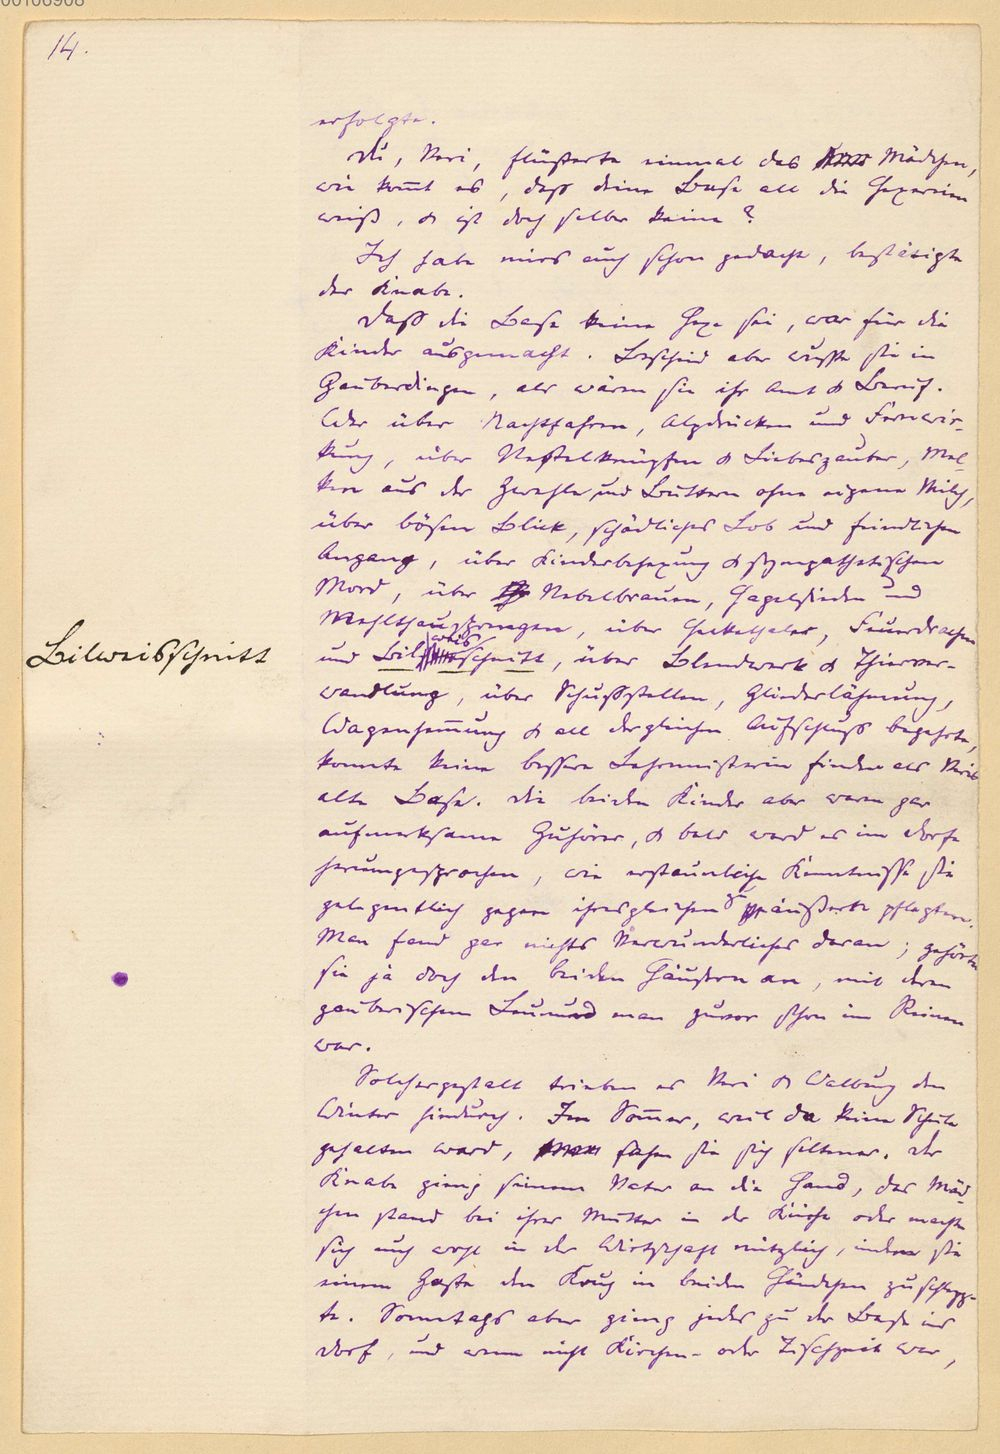 00106908
14.
erfolgte.
Du, Veri, flüsterte einmal das Mädchen,
wie kom̅t es, daß deine Base all die Hexereien
weiß, & ist doch selber keine?
Ich habe mirs auch schon gedacht, bestätigte
der Knabe.
Daß die Base keine Hexe sei, war für die
Kinder ausgemacht. Bescheid aber wußte sie in
Zauberdingen, als wären sie ihr Amt & Beruf.
Wer über Nachtfahren, Alpdrücken und Fernwir-
kung, über Nestelknüpfen & Liebeszauber, Mel-
ken aus der Zwehle und Buttern ohne eigene Milch,
über bösen Blick, schädliches Lob und feindlichen
Angang, über Kinderbehexung & sympathetischen
Mord, über Nebelbrauen, Hagelsieden und
Mehlthausprengen, über Heckethaler, Feuerdrachen
Bilweisschnitt
und Bilweisschnitt, über Blendwerk & Thierver-
wandlung, über Schußstellen, Gliederlähmung,
Wagenhem̅ung & all dergleichen Aufschluß begehrte,
konnte keine bessere Lehrmeisterin finden als Veris
alte Base. Die beiden Kinder aber waren gar
aufmerksame Zuhörer, & bald ward es im Dorfe
herumgesprochen, wie erstaunliche Kenntnisse sie
gelegentlich gegen ihresgleichen zu äußern pflegten.
Man fand gar nichts Verwunderliches daran; gehörten
sie ja doch den beiden Häusern an, mit deren
zauberischem Leumund man zuvor schon im Reinen
war.
Solchergestalt trieben es Veri & Walburg den
Winter hindurch. Im Som̅er, weil da keine Schule
gehalten ward, sahen sie sich seltener. Der
Knabe gieng seinem Vater an die Hand, das Mäd-
chen stand bei ihrer Mutter in der Küche oder machte
sich auch wohl in der Wirtschaft nützlich, indem sie
einem Gaste den Krug in beiden Händchen zuschlepp-
te. Sonntags aber gieng jedes zu der Base ins
Dorf, und wenn nicht Kirchen- oder Tischzeit war,